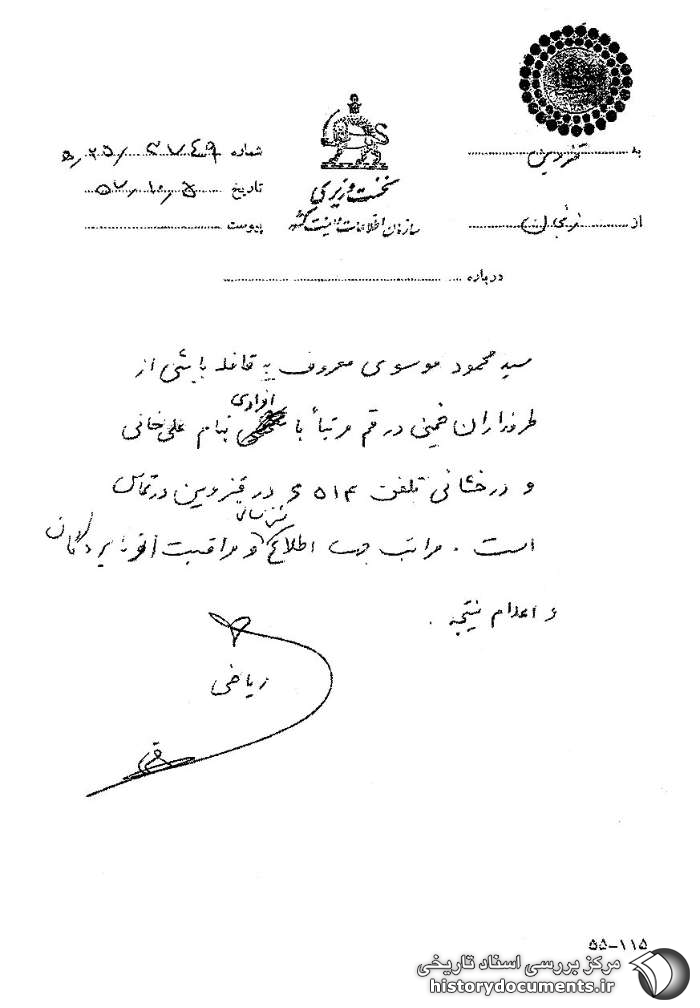 به قزوین
از زنجان
نخست وزیری
سازمان اطلاعات و امنیت کشور
شماره ۵٫۲۵/۳۷۴۹
تاریخ ۵۷٫۱۰٫۵
پیوست
درباره
سید محمود موسوی معروف به قافله باشی از
طرفداران خمینی در قم مرتباً با افرادی بنام علی خانی
و درخشانی تلفن ۵۱۴ در قزوین در تماس
است. مراتب جهت اطلاع و مراقبت از نامبردگان
و اعلام نتیجه.
ریاضی
۵۵-۱۱۵
مرکز بررسی اسناد تاریخی
historydocuments.ir